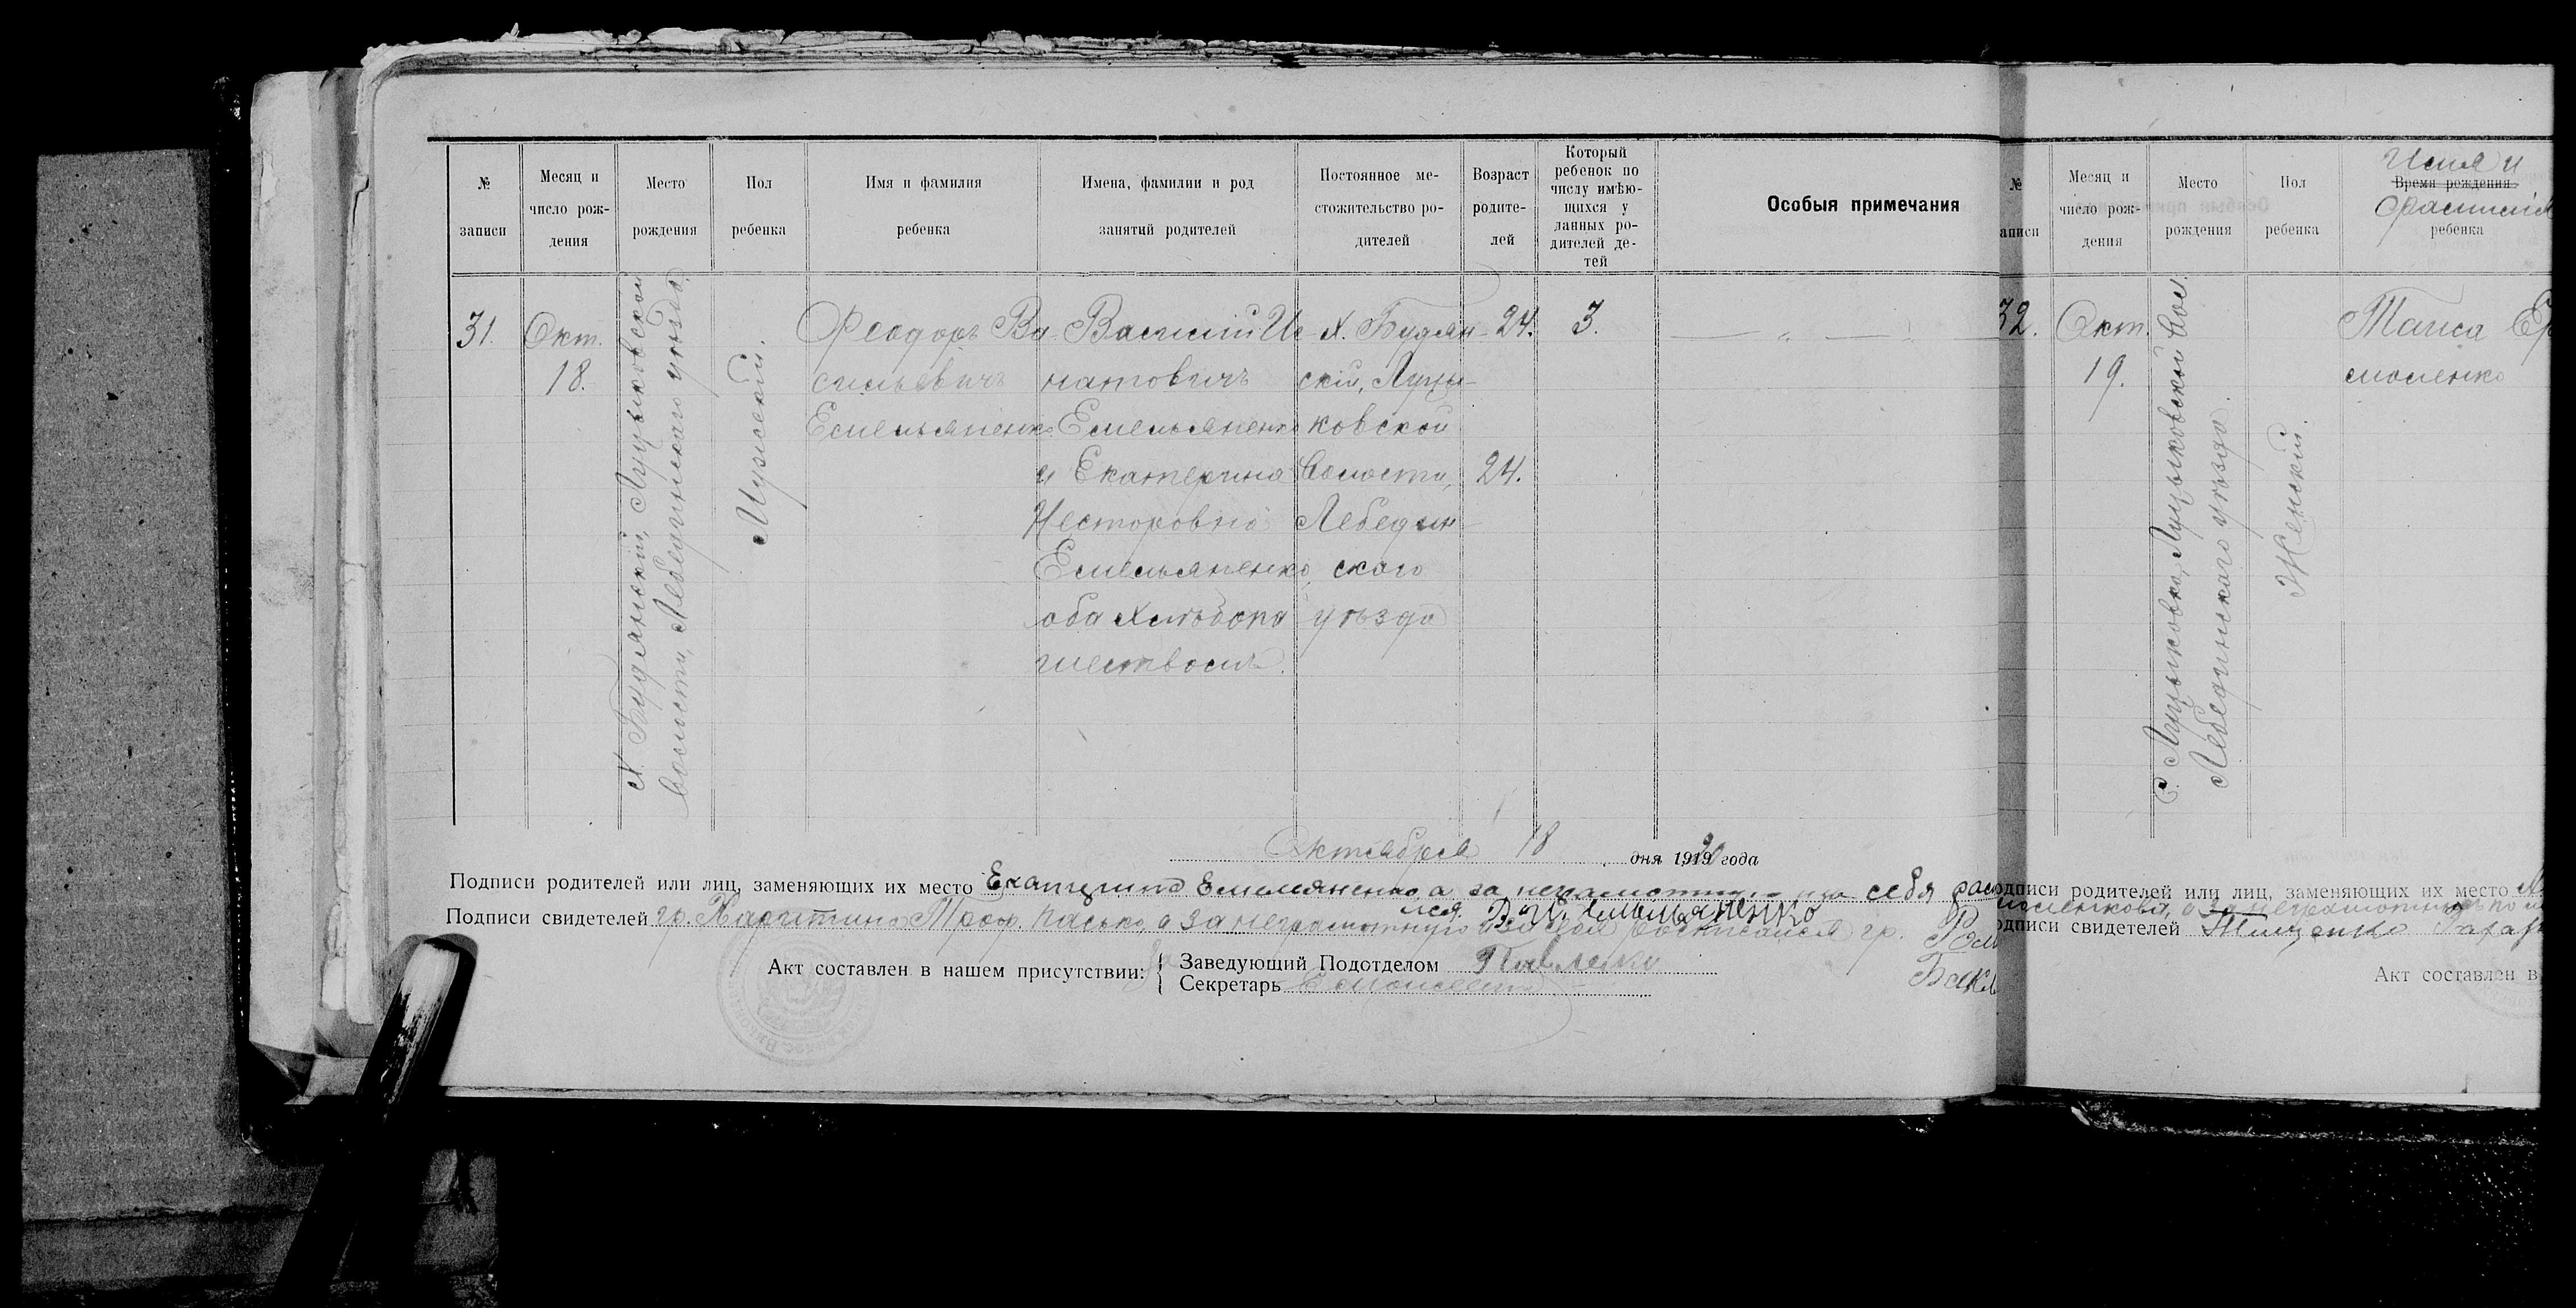 № записи
Месяц и число рождения
Место рождения
Пол ребенка
Имя и фамилия ребенка
Имена, фамилии и род занятий родителей
Постоянное местожительство родителей
Возраст родителей
Который ребенок по числу имѣющихся у данных родителей детей
Особыя примечания
31.
Окт.
18.
Х. Будлянский, Луциковской
волости, Лебединскаго уѣзда.
Мужеский.
Феодоръ Ва-
сильевичъ
Емельяненко
Василий Иг-
натовичъ
Емельяненко
и Екатерина
Несторовна
Емельяненко,
оба хлѣбопа
шествомъ.
х. Будлян-
ский, Луцы-
ковской
волости,
Лебедин-
скаго
уѣзда
24.
24.
3.
Октября 18 дня 1920 года
Подписи родителей или лиц, заменяющих их место Екатерина Емельяненко а за неграмотную и за себя рас
лся В. И. Емельяненко
Подписи свидетелей гр. Харитина Троф. Пасько а за неграмотную гр.
Акт составлен в нашем присутствии:
Заведующий Подотделом Павленко
Секретарь
32.
Месяц и число рождения
Место рождения
Пол ребенка
Имя и
Время рождения
фамилия
ребенка
Окт.
19.
С. Луцыковка, Луцыковской вол.
Лебединскаго уѣзда.
Женский.
Таиса Ер
моленко
одписи родителей или лиц, заменяющих их место
одписи свидетелей Тищенко Захар
Акт составлен в